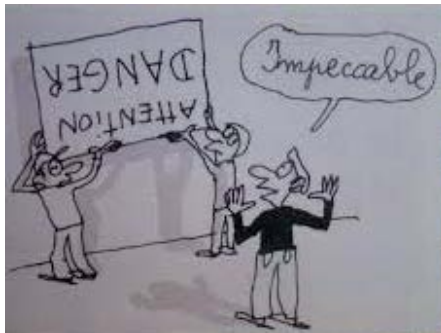 ATTENTION
DANGER
Impeccable